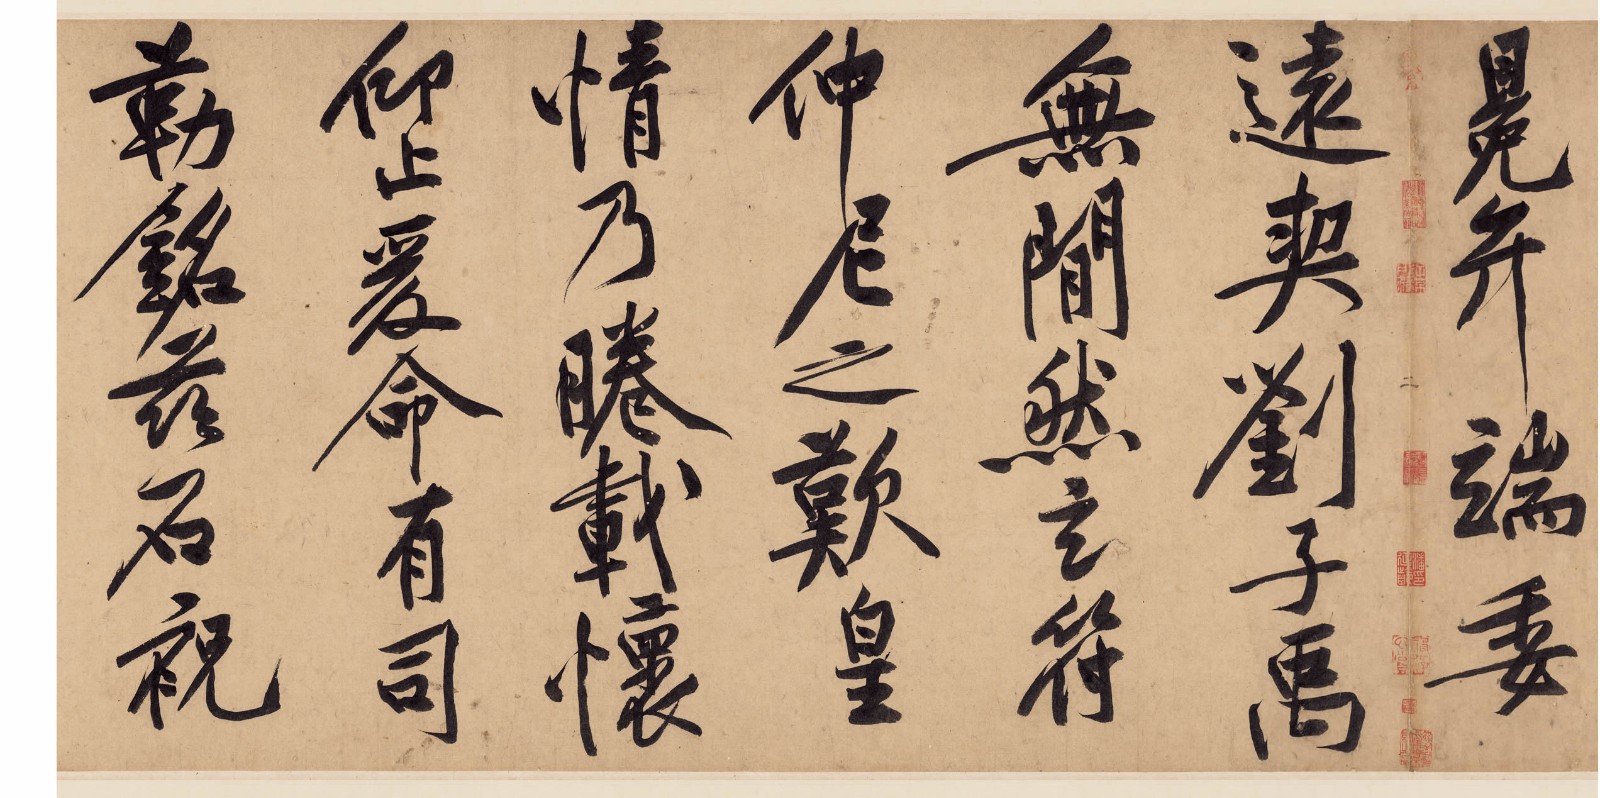 冕弁端委
二
遠契劉子禹
無閒然玄符
仲尼之歎皇
情乃睠載懷
仰止爰命有司
勒銘茲石祝